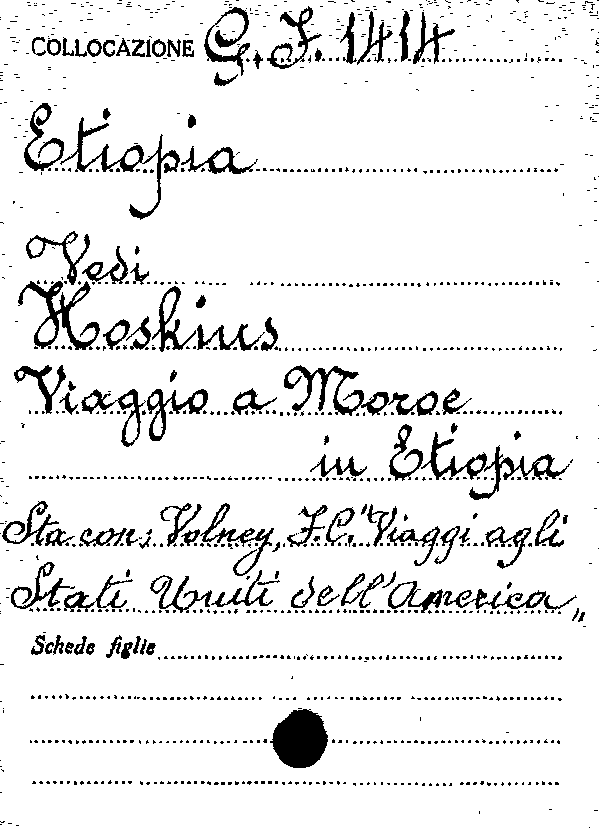 COLLOCAZIONE G.F. 1414
Etiopia
Vedi
Hoskius
Viaggio a Moroe
in Etiopia
Sta con: Volney, F.C. "Viaggi agli
Stati Uniti dell'America„
Schede figlie